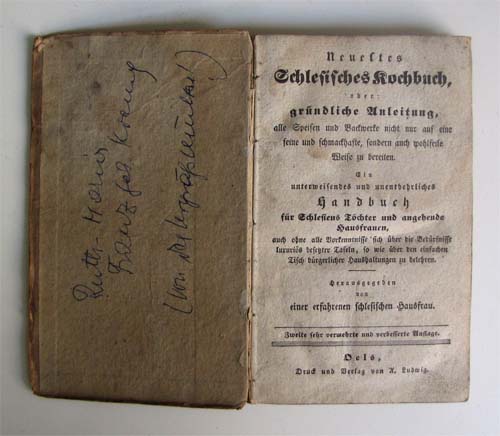 Ruth-Maria
Franz geb. Koenig
(von Urgroßmutter)
Neuestes
Schlesisches Kochbuch,
oder
gründliche Anleitung,
alle Speisen und Backwerke nicht nur auf eine
feine und schmackhafte, sondern auch wohlfeile
Weise zu bereiten.
Ein
unterweisendes und unentbehrliches
Handbuch
für Schlesiens Töchter und angehende
Hausfrauen,
auch ohne alle Vorkenntnisse sich über die Bedürfnisse
luxuriös besetzter Tafeln, so wie über den einfachen
Tisch bürgerlicher Haushaltungen zu belehren.
Herausgegeben
von
einer erfahrenen schlesischen Hausfrau.
Zweite sehr vermehrte und verbesserte Auflage.
Oels,
Druck und Verlag von A. Ludwig.